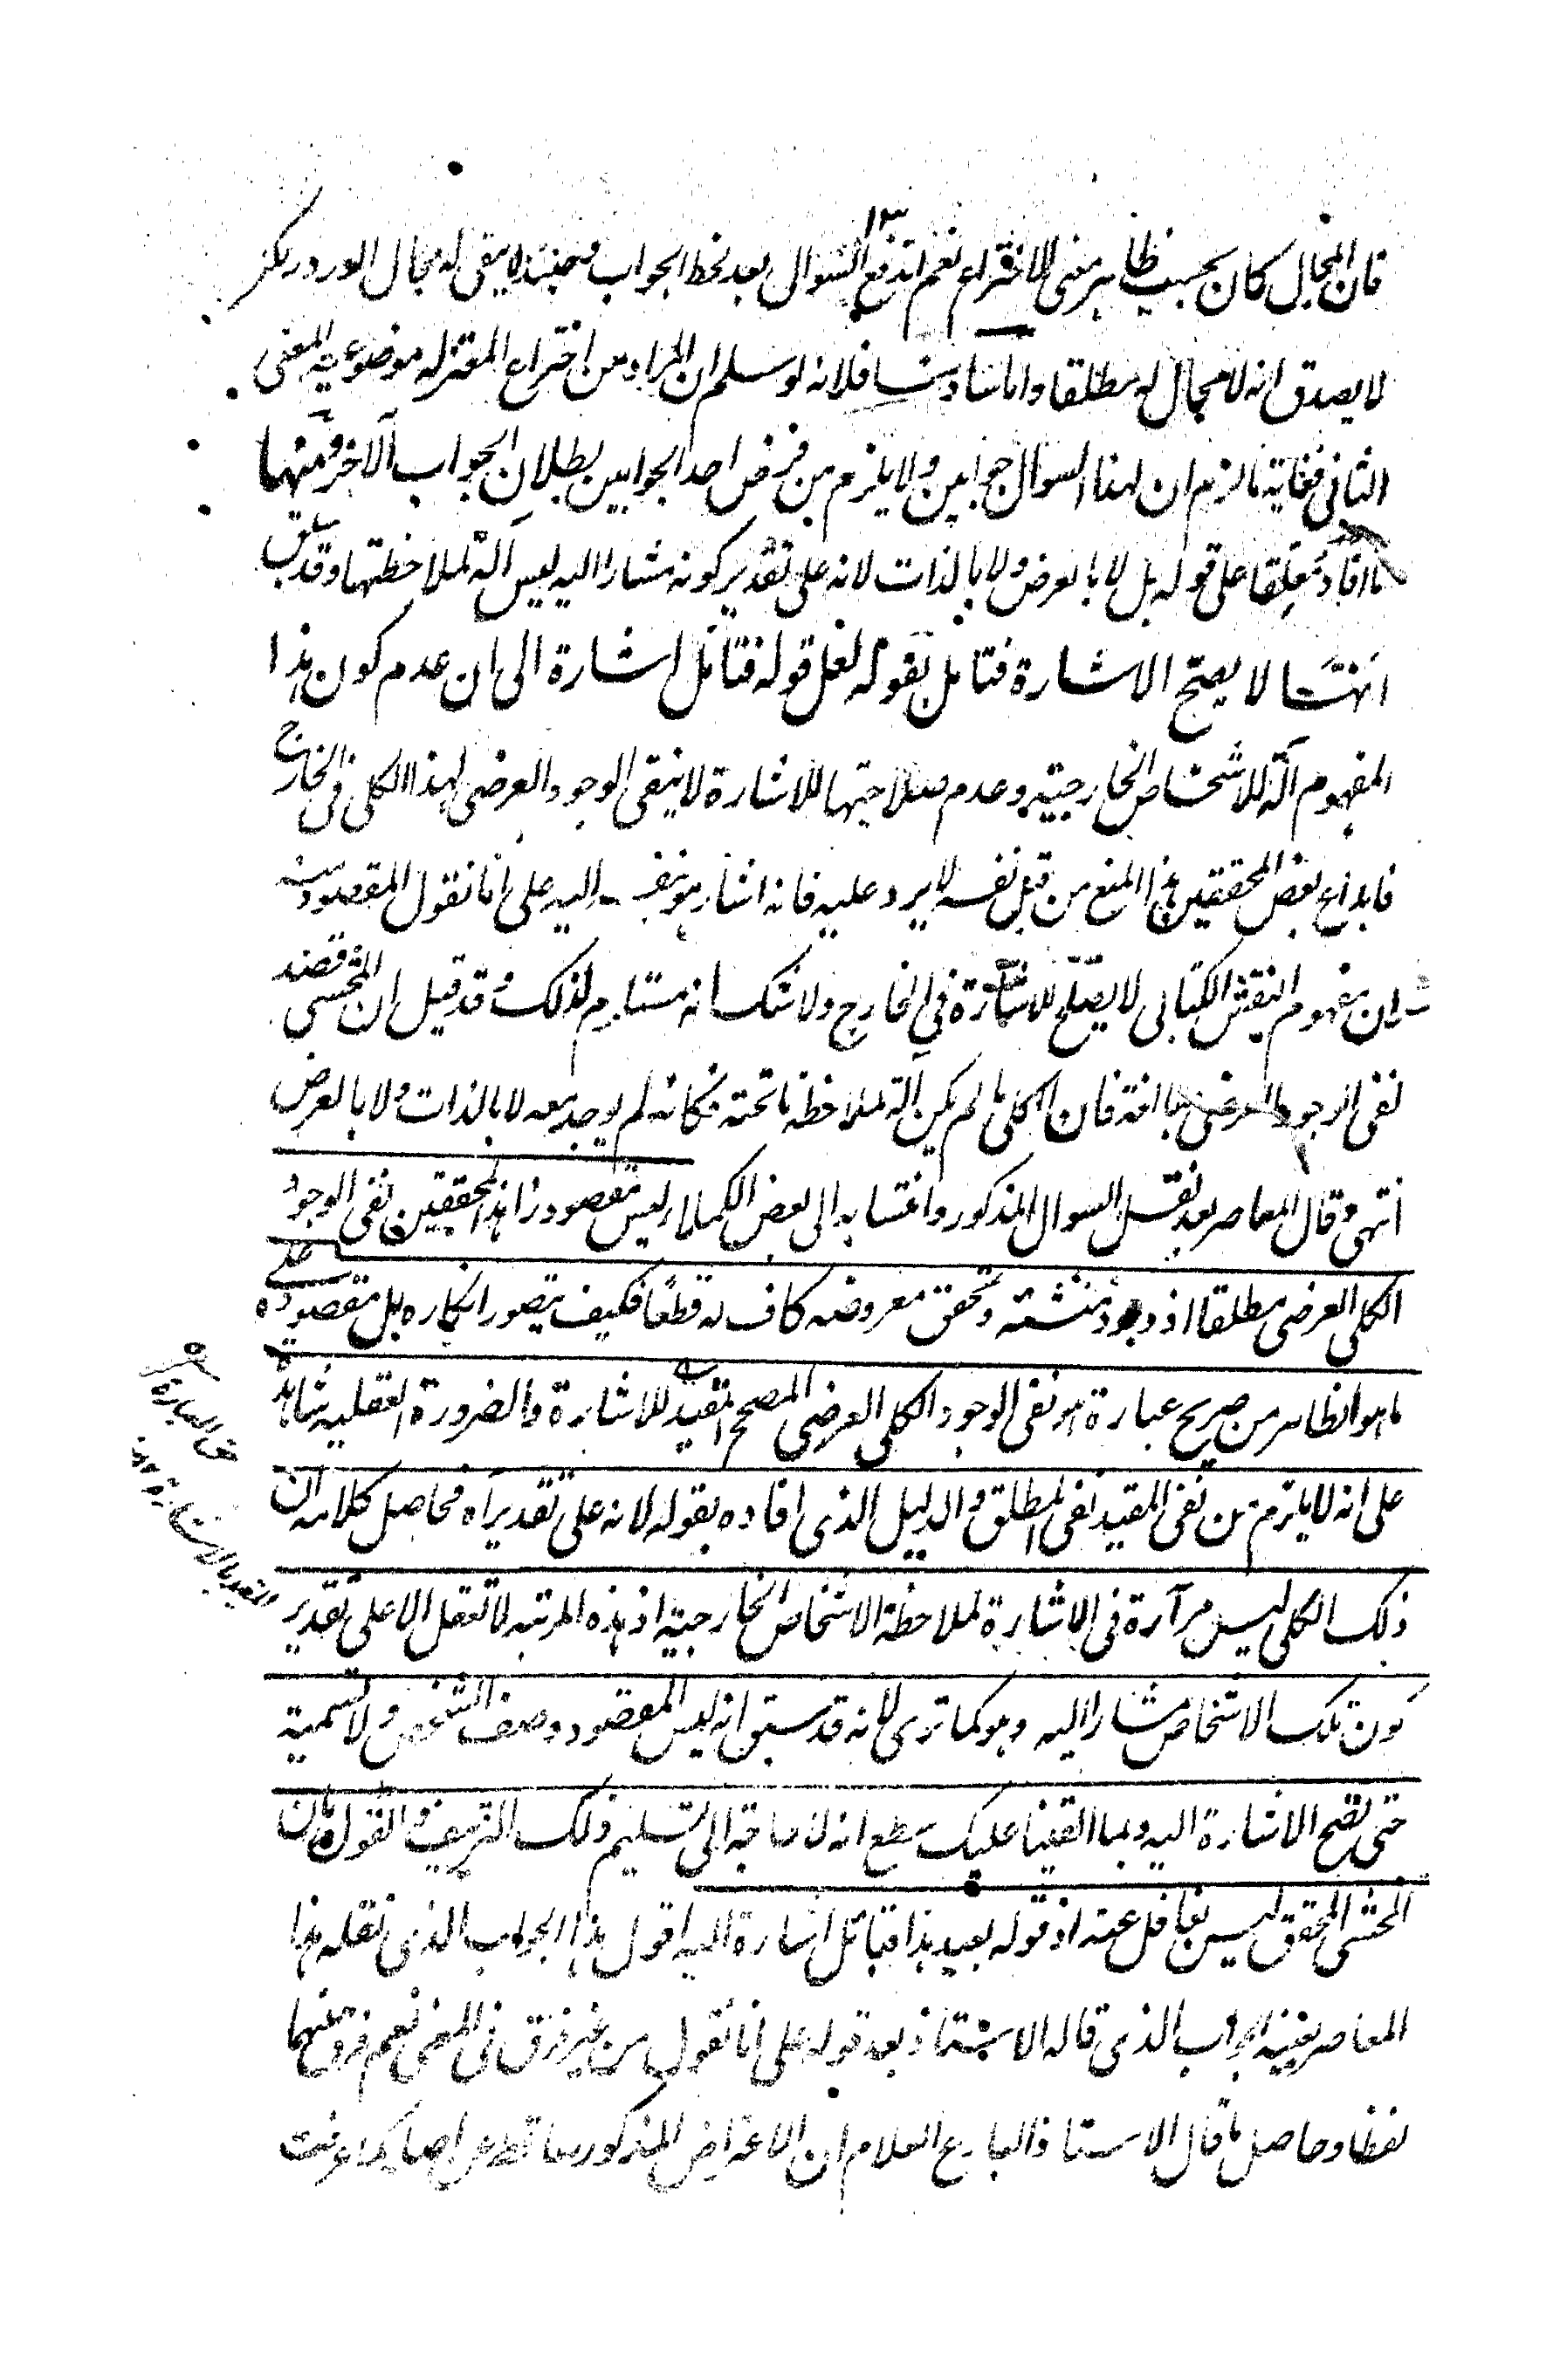 ١٣
فان المجال كان بحسب ظاهر معنى الاختراع نعم اندفع السوال بعد نحط الجواب فحينئذ لا يبقى له مجال الورود لكن
لا يصدق انه لا مجال له مطلقا واما سادسا فلانه لو سلم ان المراد من اختراع المعتزلة موضوعية المعنى
الثانى فغاية ما لزم ان لهذا السوال جوابين ولا يلزم من فرض احد الجوابين بطلان الجواب الآخر ومنها
ما افاد معلقا على قوله بل لا بالعرض ولا بالذات لانه على تقدير كونه مشارا اليه ليس آلة لملاحظتها وقد سبق
انها لا يصح الاشارة فتامل بقوله لعل قوله فتامل اشارة الى ان عدم كون هذا
المفهوم آلة للاشخاص الخارجية وعدم صلاحيتها للاشارة لا ينفى الوجود العرضى لهذا الكلى فى الخارج
فابداع بعض المحققين هذا المنع من قبل نفسه لا يرد عليه فانه اشار هو بنفسه اليه على انا نقول المقصود منه
ان مفهوم النقش الكتابى لا يصلح للاشارة فى الخارج ولا شك انه مستلزم لذلك وقد قيل ان المحشى قصد
نفى الوجود العرضى مبالغة فان الكلى ما لم يكن آلة لملاحظة ما تحته فكانه لم يوجد معه لا بالذات ولا بالعرض
انتهى وقال المعاصر بعد نقل السوال المذكور وانتسابه الى بعض الكملاء ليس مقصود زاهد المحققين نفى الوجود
الكلى العرضى مطلقا اذ وجود منشئه وتحقق معروضه كاف له قطعا فكيف يتصور انكاره بل مقصوده على
ما هو الظاهر من صريح عبارة هو نفى الوجود الكلى العرضى المصحح المقيد للاشارة والضرورة العقلية شاهدة
على انه لا يلزم من نفى المقيد نفى المطلق والدليل الذى افاده بقوله لانه على تقدير آه فحاصل كلامه ان
ذلك الكلى ليس مرآة فى الاشارة لملاحظة الاشخاص الخارجية اذ هذه المرتبة لا تعقل الا على تقدير
كون تلك الاشخاص مشارا اليه وهو كما ترى لانه قد سبق انه ليس المقصود وصف الشخص ولا تسمية
حتى تصح الاشارة اليه وبما القينا عليك سطع انه لا حاجة الى تسليم ذلك التزييف والقول بان
المحشى المحقق ليس بغافل عنه اذ قوله بعيد هذا فتامل اشارة اليه اقول هذا الجواب الذى نقله هذا
المعاصر بعينه الجواب الذى قاله الاستاذ بعد قوله على انا نقول من غير فرق فى المعنى نعم فرق بينهما
لفظا وحاصل ما قال الاستاذ البارع العلام ان الاعتراض المذكور ساقط عن اصله كما عرفت